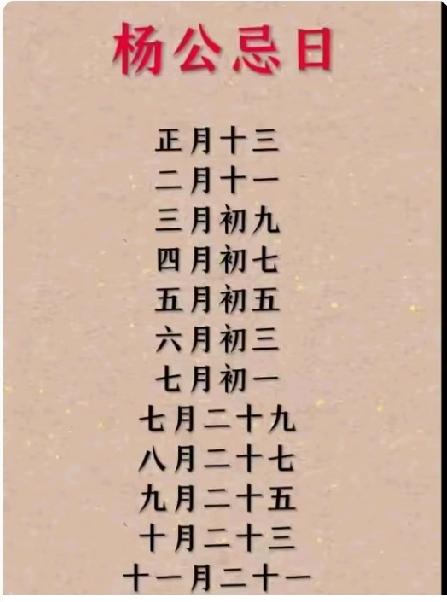 杨公忌日
正月十三
二月十一
三月初九
四月初七
五月初五
六月初三
七月初一
七月二十九
八月二十七
九月二十五
十月二十三
十一月二十一